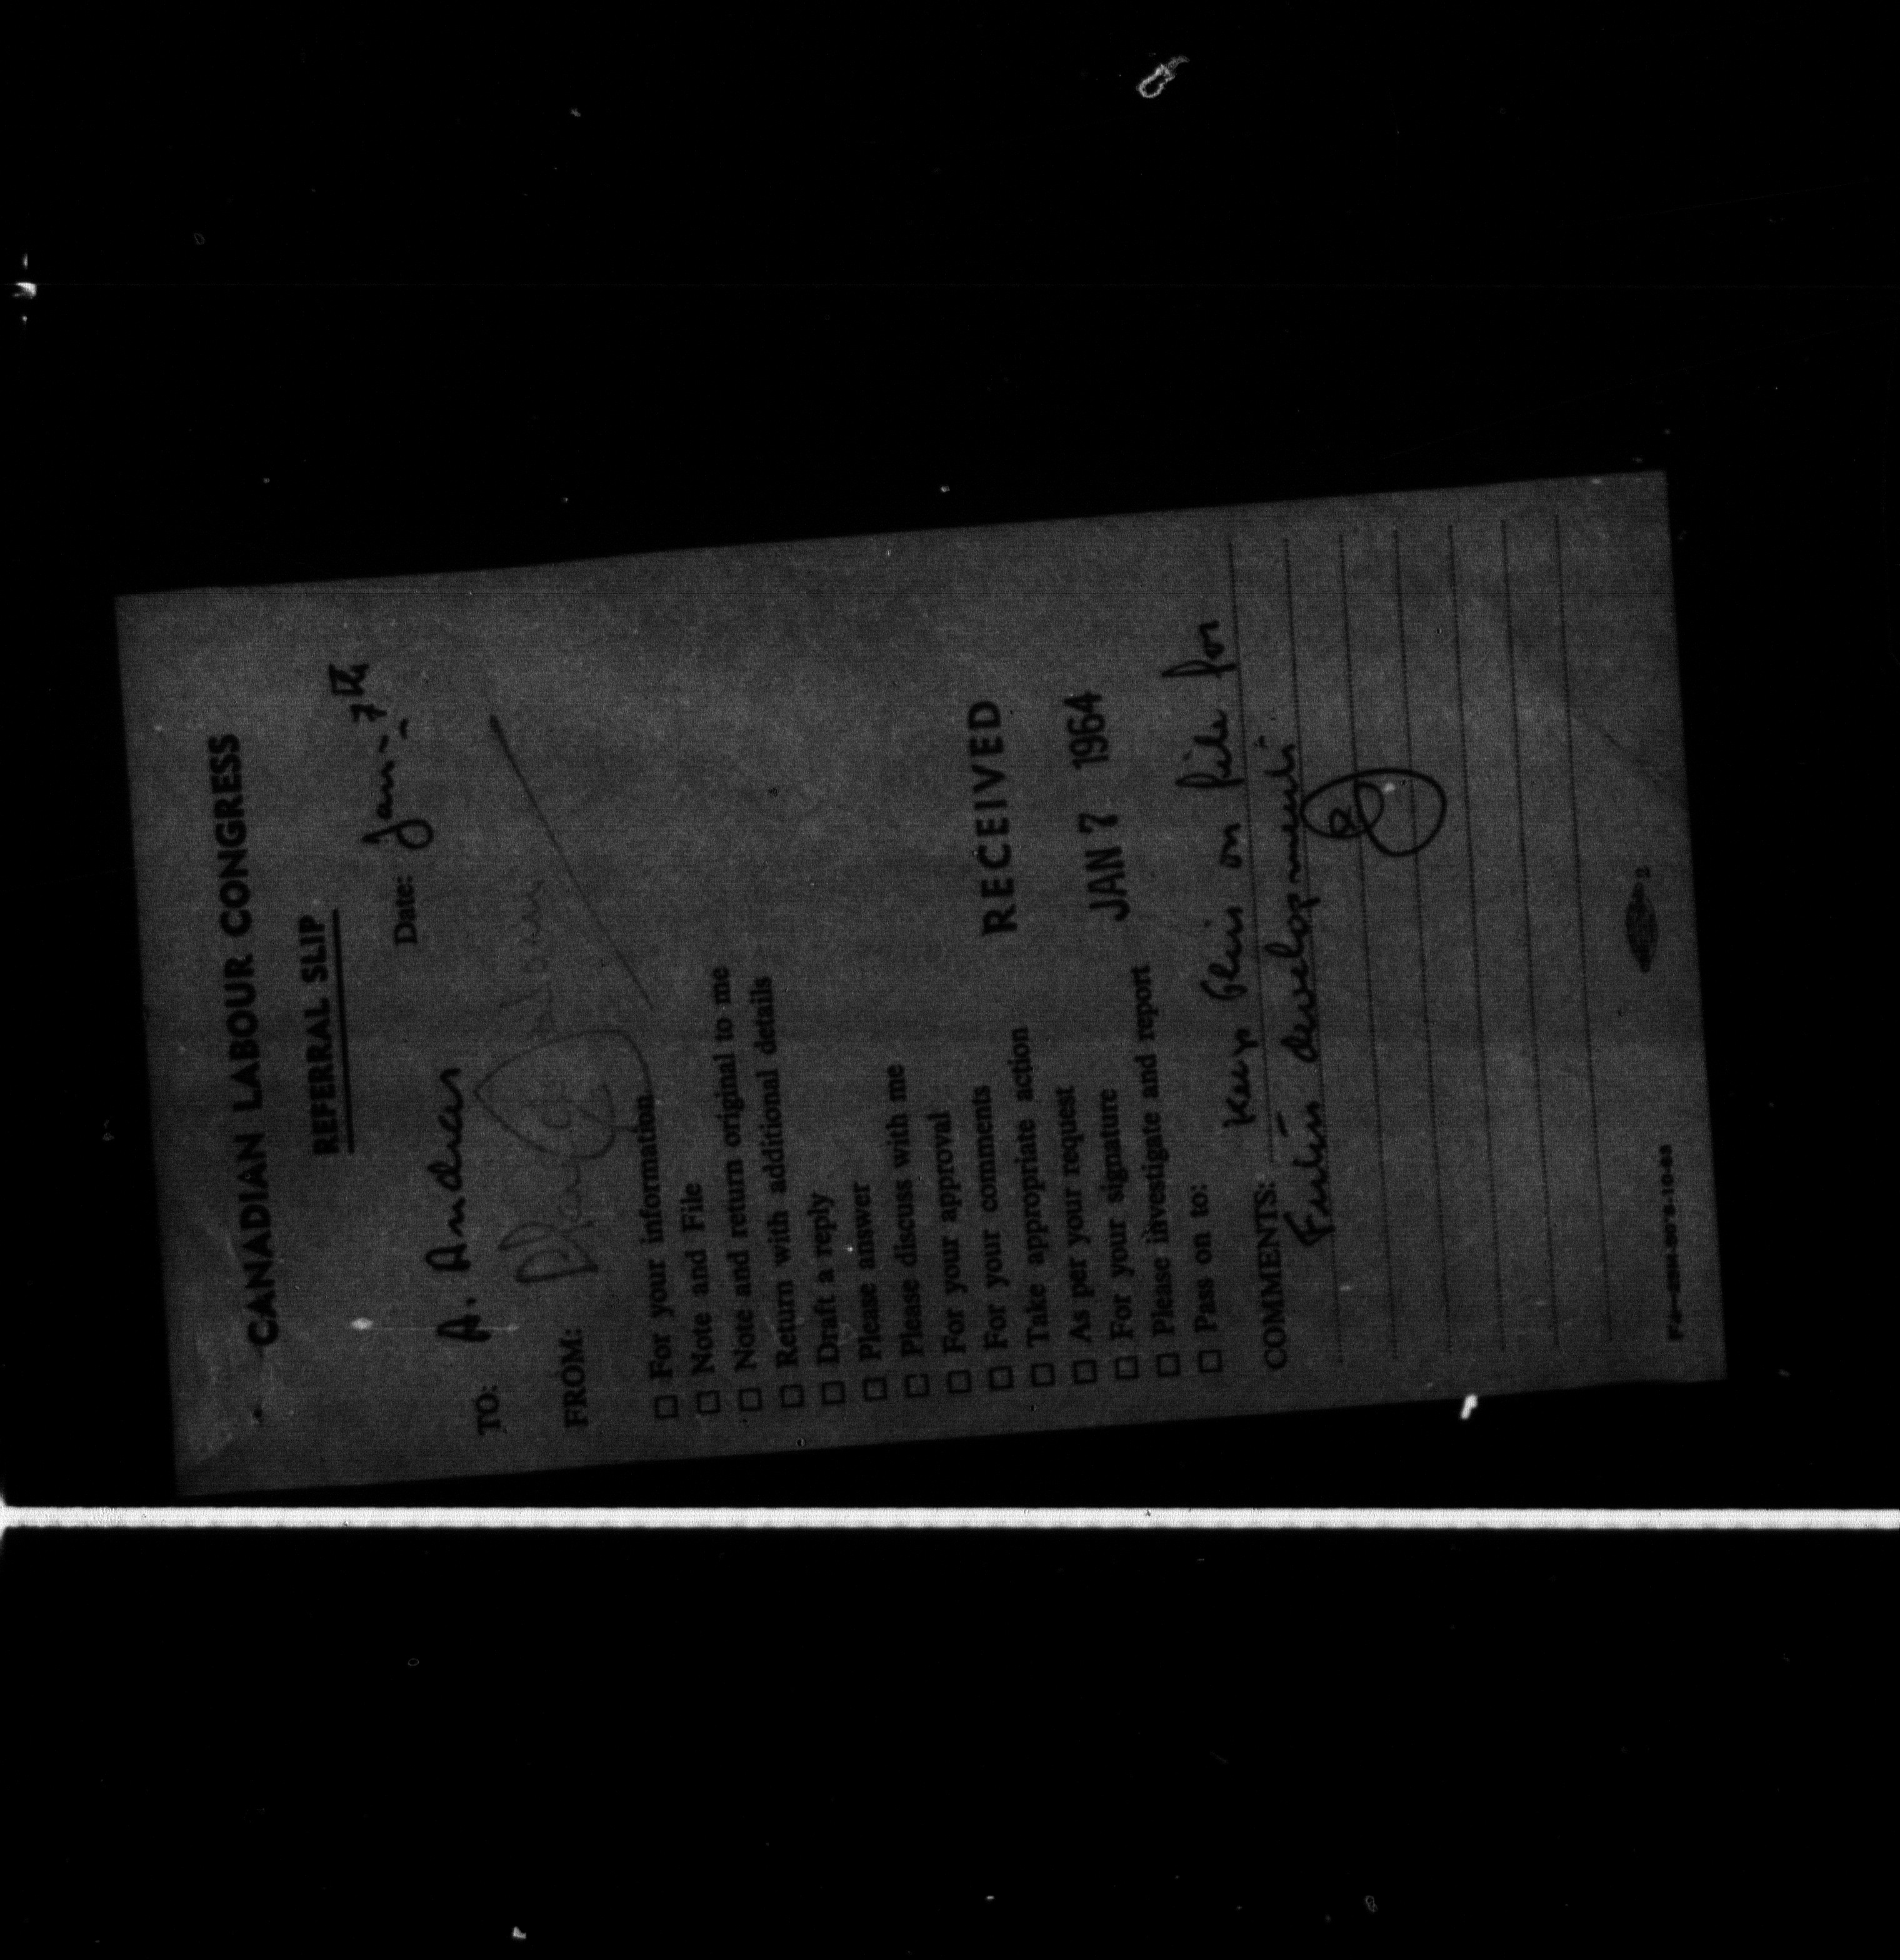 CANADIAN LABOUR CONGRESS
REFERRAL SLIP
Date: Jan. 7th
TO: A. Andras
FROM:
☐ For your information
☐ Note and File
☐ Note and return original to me
☐ Return with additional details
☐ Draft a reply
☐ Please answer
☐ Please discuss with me
☐ For your approval
☐ For your comments
☐ Take appropriate action
☐ As per your request
☐ For your signature
☐ Please investigate and report
☐ Pass on to:
RECEIVED
JAN 7 1964
COMMENTS: Keep this on file for
Further developments
2